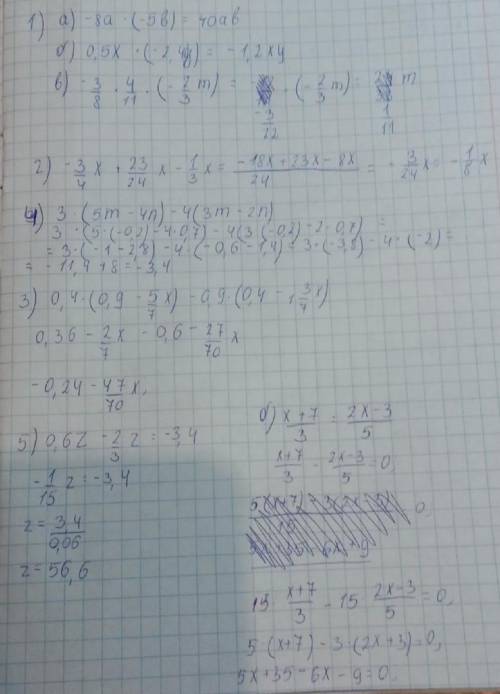 1) а) -8a · (-5b) = 40ab
б) 0,5x · (-2,4y) = -1,2xy
в) -3/8 · 4/11 · (-2/3 m) = -3/22 · (-2/3 m) = 1/11 m
2) -3/4 x + 23/24 x - 1/3 x = (-18x + 23x - 8x)/24 = -3/24 x = -1/8 x
4) 3 · (5m - 4n) - 4(3m - 2n)
3 · (5 · (-0,2) - 4 · 0,7) - 4(3·(-0,2) - 2 · 0,7) =
= 3 · (-1 - 2,8) - 4 · (-0,6 - 1,4) = 3 · (-3,8) - 4 · (-2) =
= -11,4 + 8 = -3,4
3) 0,4 · (0,9 - 5/7 x) - 0,9 · (0,4 - 1 3/7 x)
0,36 - 2/7 x - 0,6 - 27/70 x
-0,24 - 47/70 x,
5) 0,6z - 2/3 z = -3,4
-1/15 z = -3,4
z = 3,4/0,06
z = 56,6
б) (x+7)/3 = (2x-3)/5
(x+7)/3 - (2x-3)/5 = 0,
15 (x+7)/3 - 15 (2x-3)/5 = 0,
5 · (x+7) - 3 · (2x+3) = 0,
5x + 35 - 6x - 9 = 0,